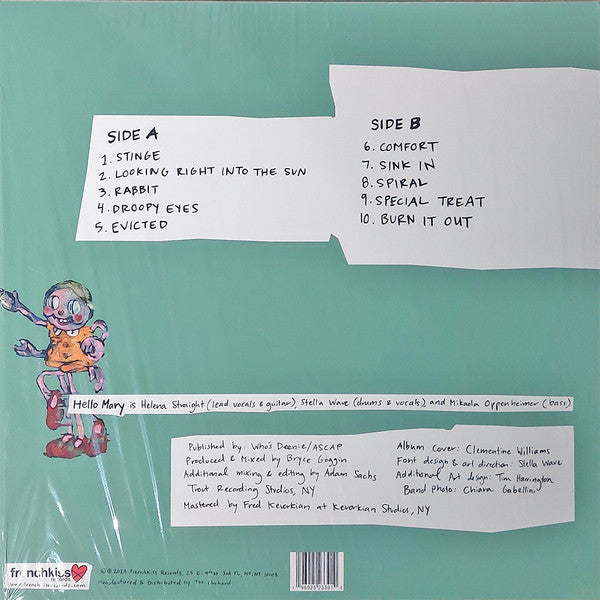 SIDE A
1. STINGE
2. LOOKING RIGHT INTO THE SUN
3. RABBIT
4. DROOPY EYES
5. EVICTED
SIDE B
6. COMFORT
7. SINK IN
8. SPIRAL
9. SPECIAL TREAT
10. BURN IT OUT
Hello Mary is Helena Straight (lead vocals & guitar), Stella Wave (drums & vocals) and Mikaela Oppenheimer (bass)
Published by: Who's Deenie/ASCAP
Produced & Mixed by Bryce Goggin
Additional mixing & editing by Adam Sachs
Trout Recording Studios, NY
Mastered by Fred Kevorkian at Kevorkian Studios, NY
Album Cover: Clementine Williams
Font design & art direction: Stella Wave
Additional Art design: Tim Harrington
Band Photo: Chiara Gabellini
frenchkiss
records
©℗2023 Frenchkiss Records, 23 E. 4th St 3rd FL, NY, NY 10003
Manufactured & Distributed by The Orchard